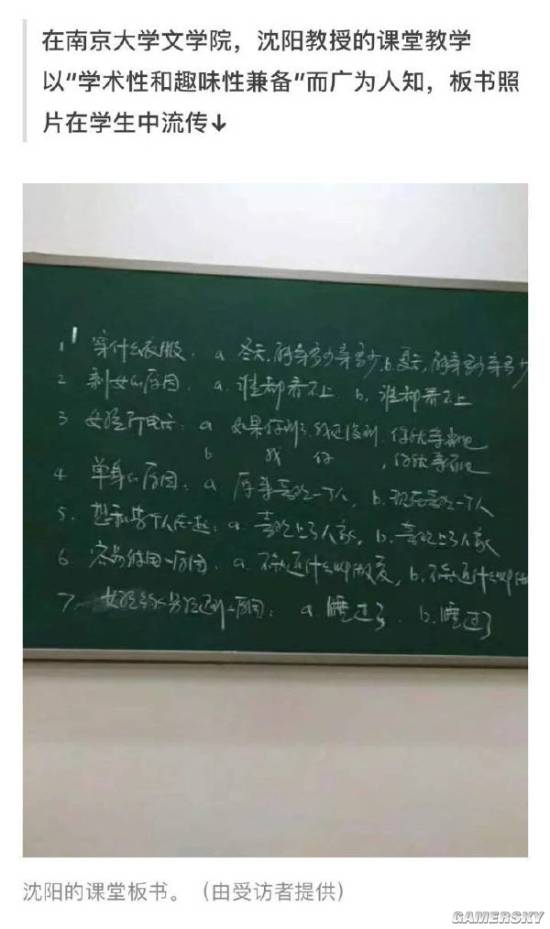 在南京大学文学院，沈阳教授的课堂教学
以“学术性和趣味性兼备”而广为人知，板书照
片在学生中流传↓
1. 穿什么衣服：a 冬天，能穿多少穿多少 b. 夏天，能穿多少穿多少
2 剩女的原因：a. 谁都看不上 b. 谁都看不上
3 女孩打电话：a 如果你到了，我还没到，你就等着吧
b 我 你 ，你就等着吧
4. 单身的原因：a 原来喜欢一个人，b. 现在喜欢一个人
5. 想和某个人在一起：a. 喜欢上了人家，b. 喜欢上了人家
6 容易怀困的原因：a. 不知道什么叫做爱，b. 不知道什么叫做
7. 女孩给男孩 原因：a. 睡过了 b. 睡过了
沈阳的课堂板书。（由受访者提供）
GAMERSKY